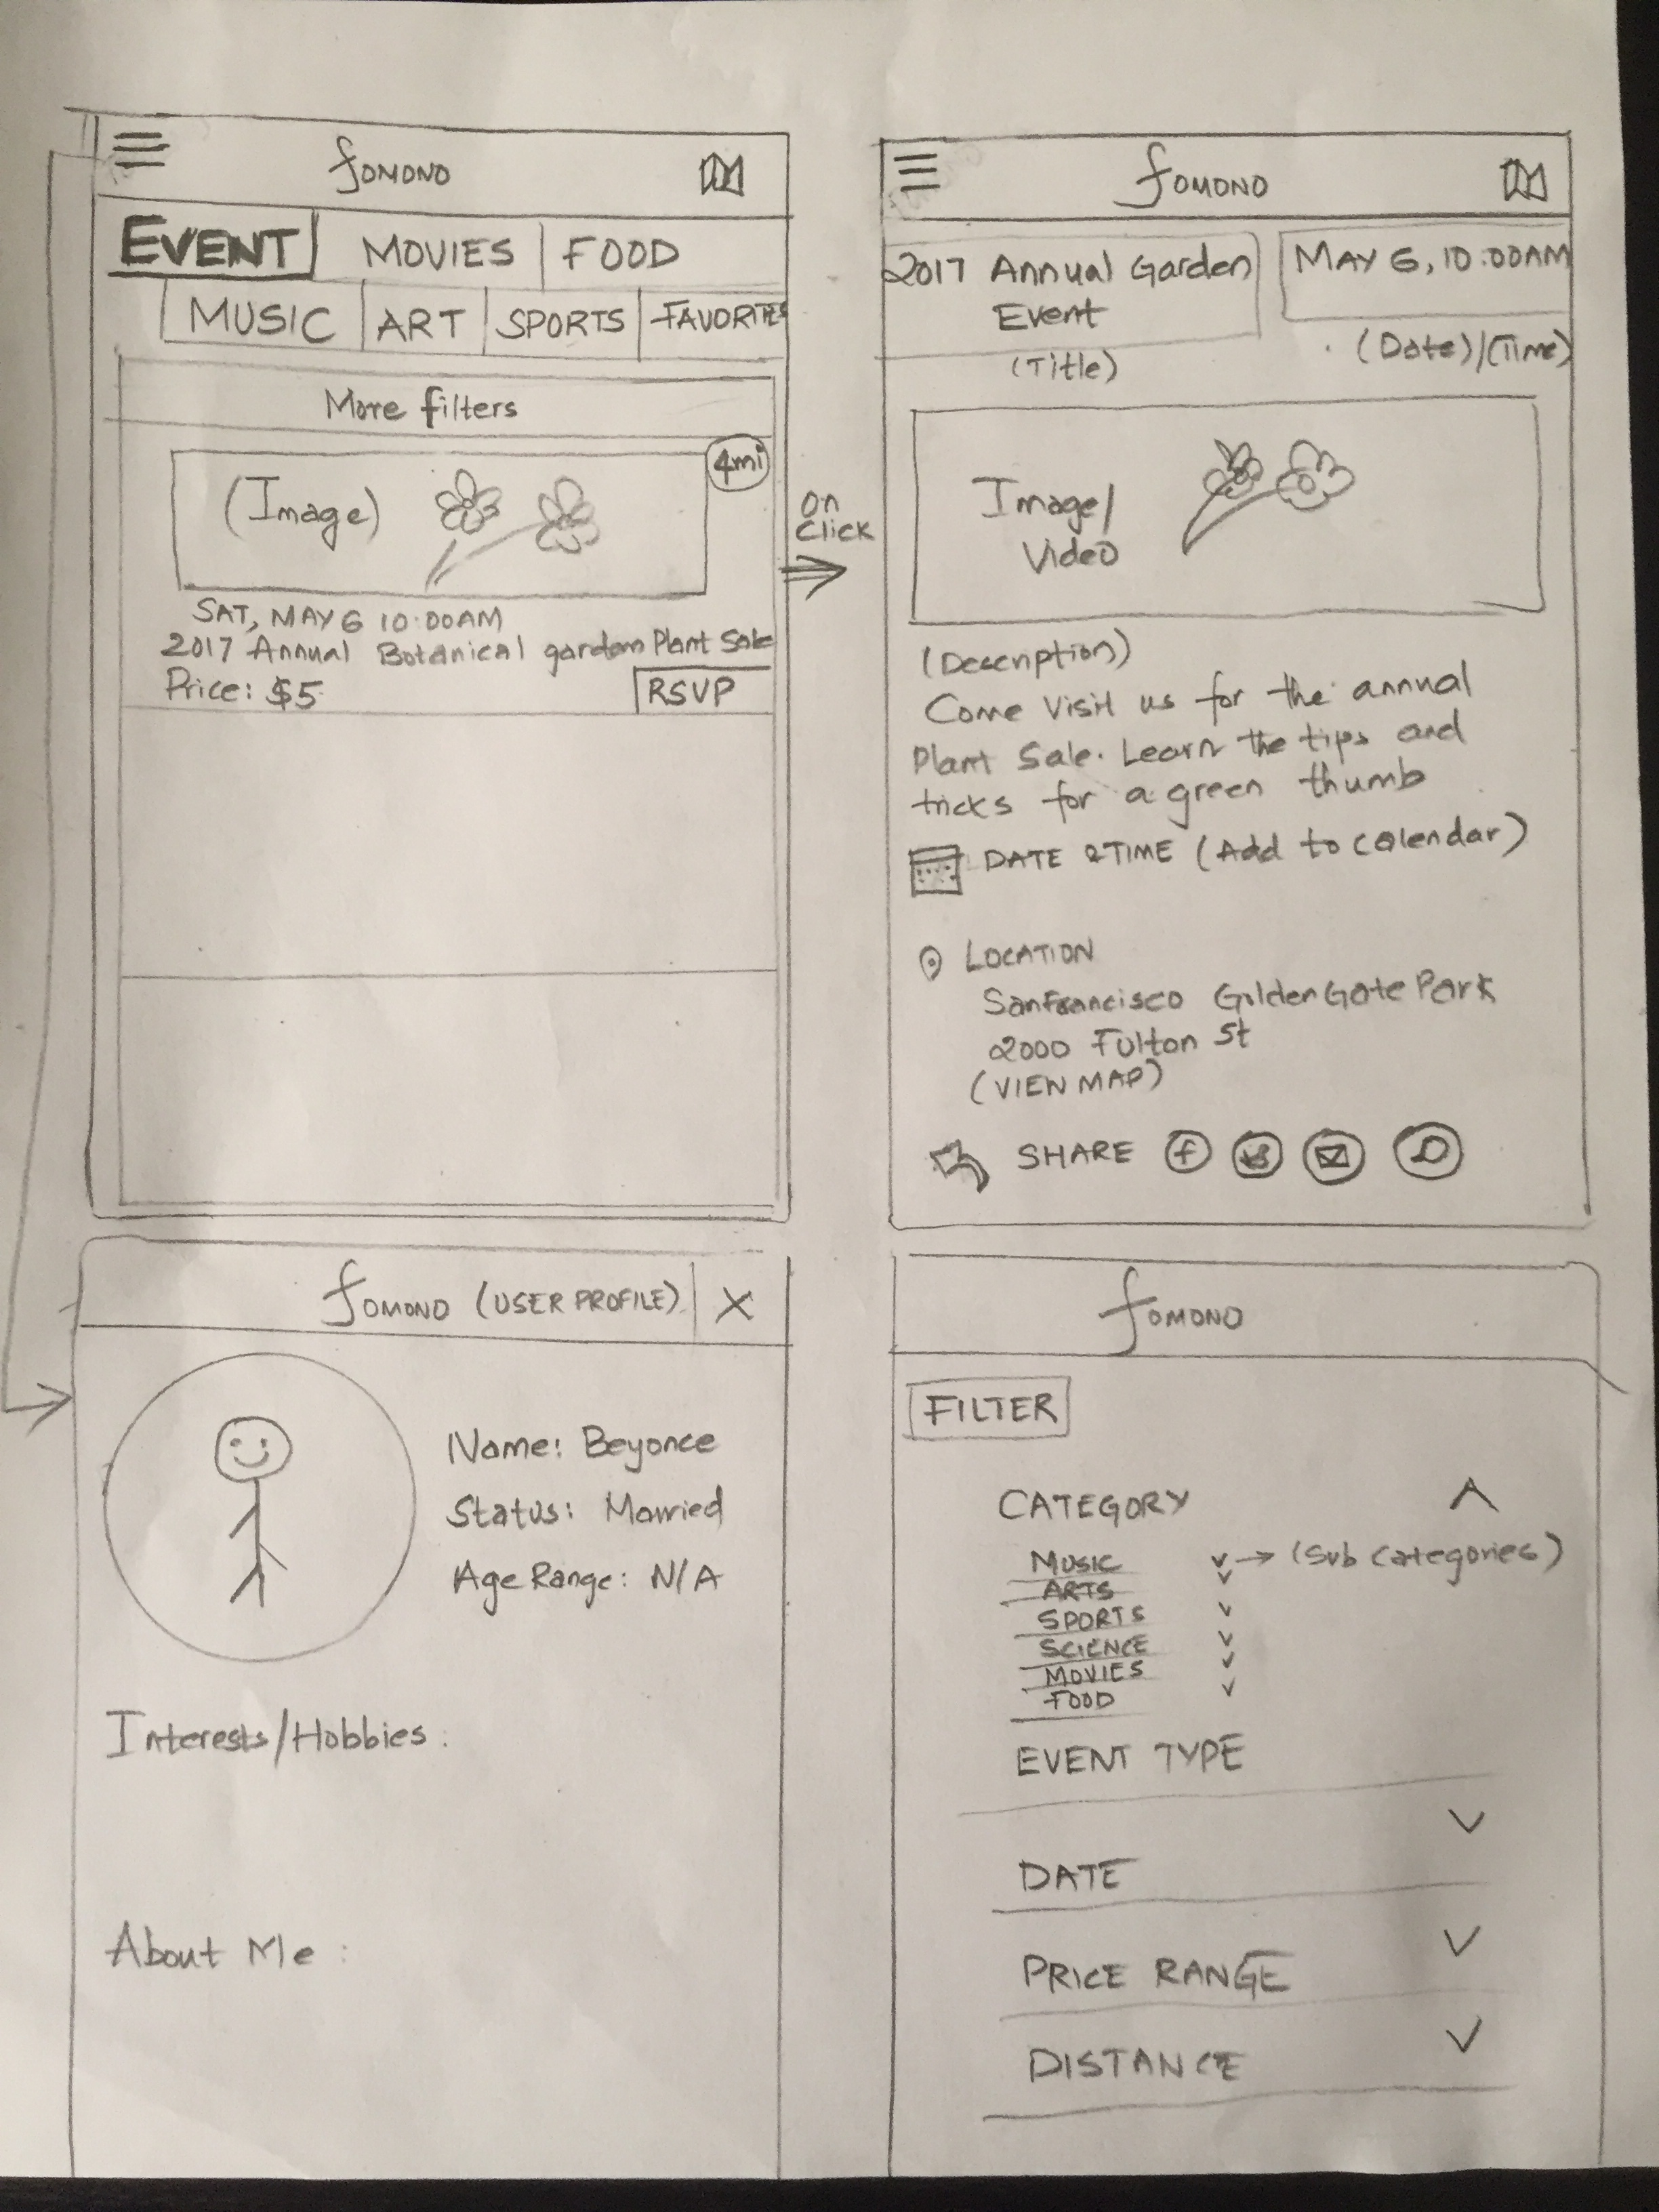 fomono
EVENT MOVIES FOOD
MUSIC ART SPORTS FAVORITES
More filters
(Image)
4mi
SAT, MAY 6 10:00AM
2017 Annual Botanical garden Plant Sale
Price: $5
RSVP
on
click
fomono
2017 Annual Garden
Event
(Title)
MAY 6, 10:00AM
(Date)/(Time)
Image/
Video
(Description)
Come Visit us for the annual
Plant Sale. Learn the tips and
tricks for a green thumb
DATE &TIME (Add to calendar)
LOCATION
SanFrancisco GoldenGate Park
2000 Fulton St
(VIEW MAP)
SHARE f
fomono (USER PROFILE) X
Name: Beyonce
Status: Married
Age Range: N/A
Interests/Hobbies:
About Me:
fomono
FILTER
CATEGORY
MUSIC → (Sub categories)
ARTS
SPORTS
SCIENCE
MOVIES
FOOD
EVENT TYPE
DATE
PRICE RANGE
DISTANCE